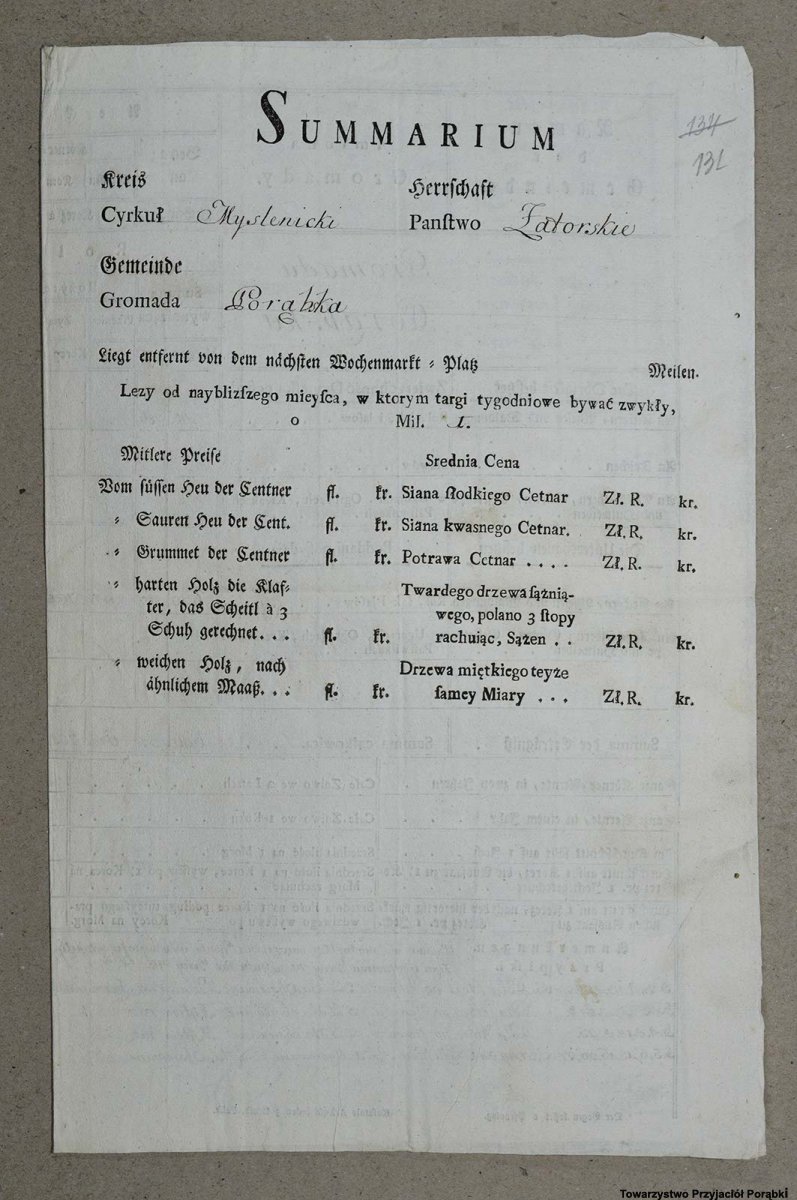 SUMMARIUM
134
131
Kreis Herrschaft
Cyrkuł Myslenicki Panſtwo Zatorskie
Gemeinde
Gromada Porąbka
Liegt entfernt von dem nächſten Wochenmarkt ⸗ Platz Meilen.
Lezy od nayblizſzego mieyſca, w ktorym targi tygodniowe bywać zwykły,
o Mil. 1.
Mitlere Preiſe Srednia Cena
Vom ſüſſen Heu der Centner fl. kr. Siana ſłodkiego Cetnar Zł. R. kr.
⸗ Sauren Heu der Cent. fl. kr. Siana kwasnego Cetnar. Zł. R. kr.
⸗ Grummet der Centner fl. kr. Potrawa Cetnar . . . . Zł. R. kr.
⸗ harten Holz die Klaf⸗ Twardego drzewa ſążnią-
ter, das Scheitl à 3 wego, polano 3 ſtopy
Schuh gerechnet. . . fl. kr. rachuiąc, Sążen . . Zł. R. kr.
⸗ weichen Holz, nach Drzewa miętkiego teyże
ähnlichem Maaß. . . fl. kr. ſamey Miary . . . Zł. R. kr.
Towarzystwo Przyjaciół Porąbki